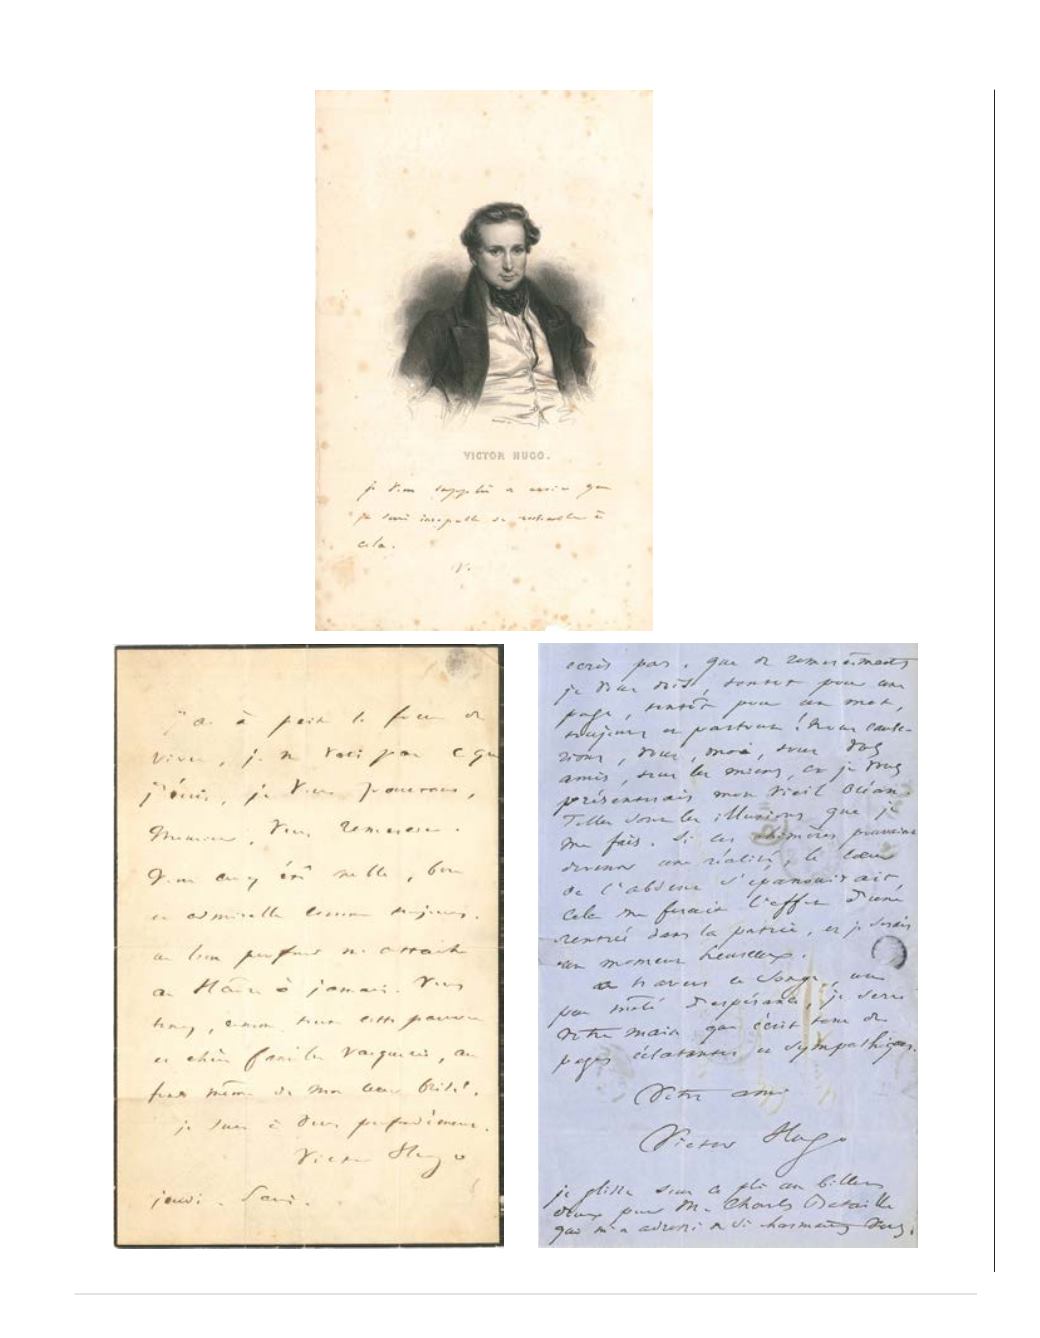 VICTOR HUGO.
je suis incapable de
cela.
V.
J'ai à peine la force de
vivre, je ne sais pas ce que
j'écris, je vous
Monsieur, vous remercier.
Vous avez été noble, bon
et admirable comme toujours.
un lien profond m'attache
au Hâvre à jamais. Vous
cette pauvre
et chère famille Vacquerie, au
fond même de mon cœur brisé.
je suis à vous profondément.
Victor Hugo
jeudi.
écris pas. que de remercîments
je vous dois, tantôt pour une
page, tantôt pour un mot,
toujours et partout! Nous cause-
rions, vous, moi, vos
amis, les miens, et je vous
présenterais mon vieil océan.
Telles sont les illusions que je
me fais. Si ces chimères pouvaient
devenir une réalité, le cœur
de l'absent s'épanouirait,
cela me ferait l'effet d'une
rentrée dans la patrie, et je serais
un moment heureux.
à travers ce songe, un
peu mêlé d'espérance, je serre
votre main qui écrit tant de
pages éclatantes et sympathiques.
Votre ami
Victor Hugo
je glisse sous ce pli un billet
pour M. Charles Bataille
qui m'a adressé de si charmants vers.